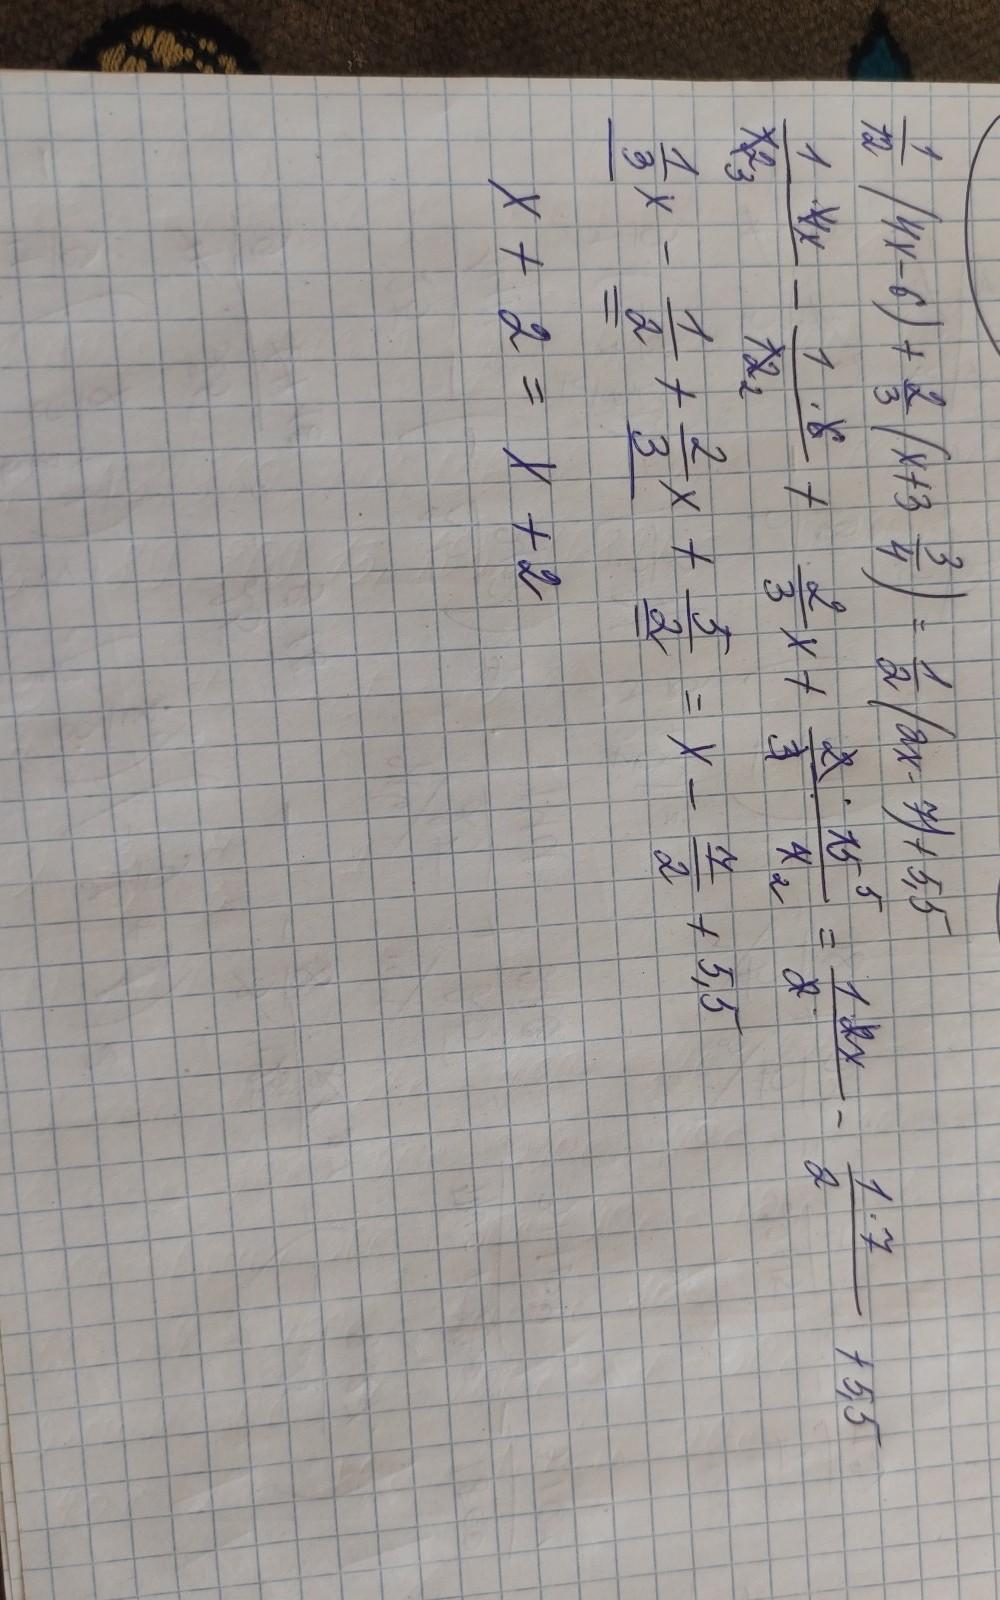 1/12 (4x-6) + 2/3 (x+3 3/4) = 1/2 (2x-7) + 5,5
1·4x/12 3 - 1·6/12 2 + 2/3 x + 2·15 5/3·4 2 = 1·2x/2 - 1·7/2 + 5,5
1/3 x - 1/2 + 2/3 x + 5/2 = x - 7/2 + 5,5
x + 2 = x + 2